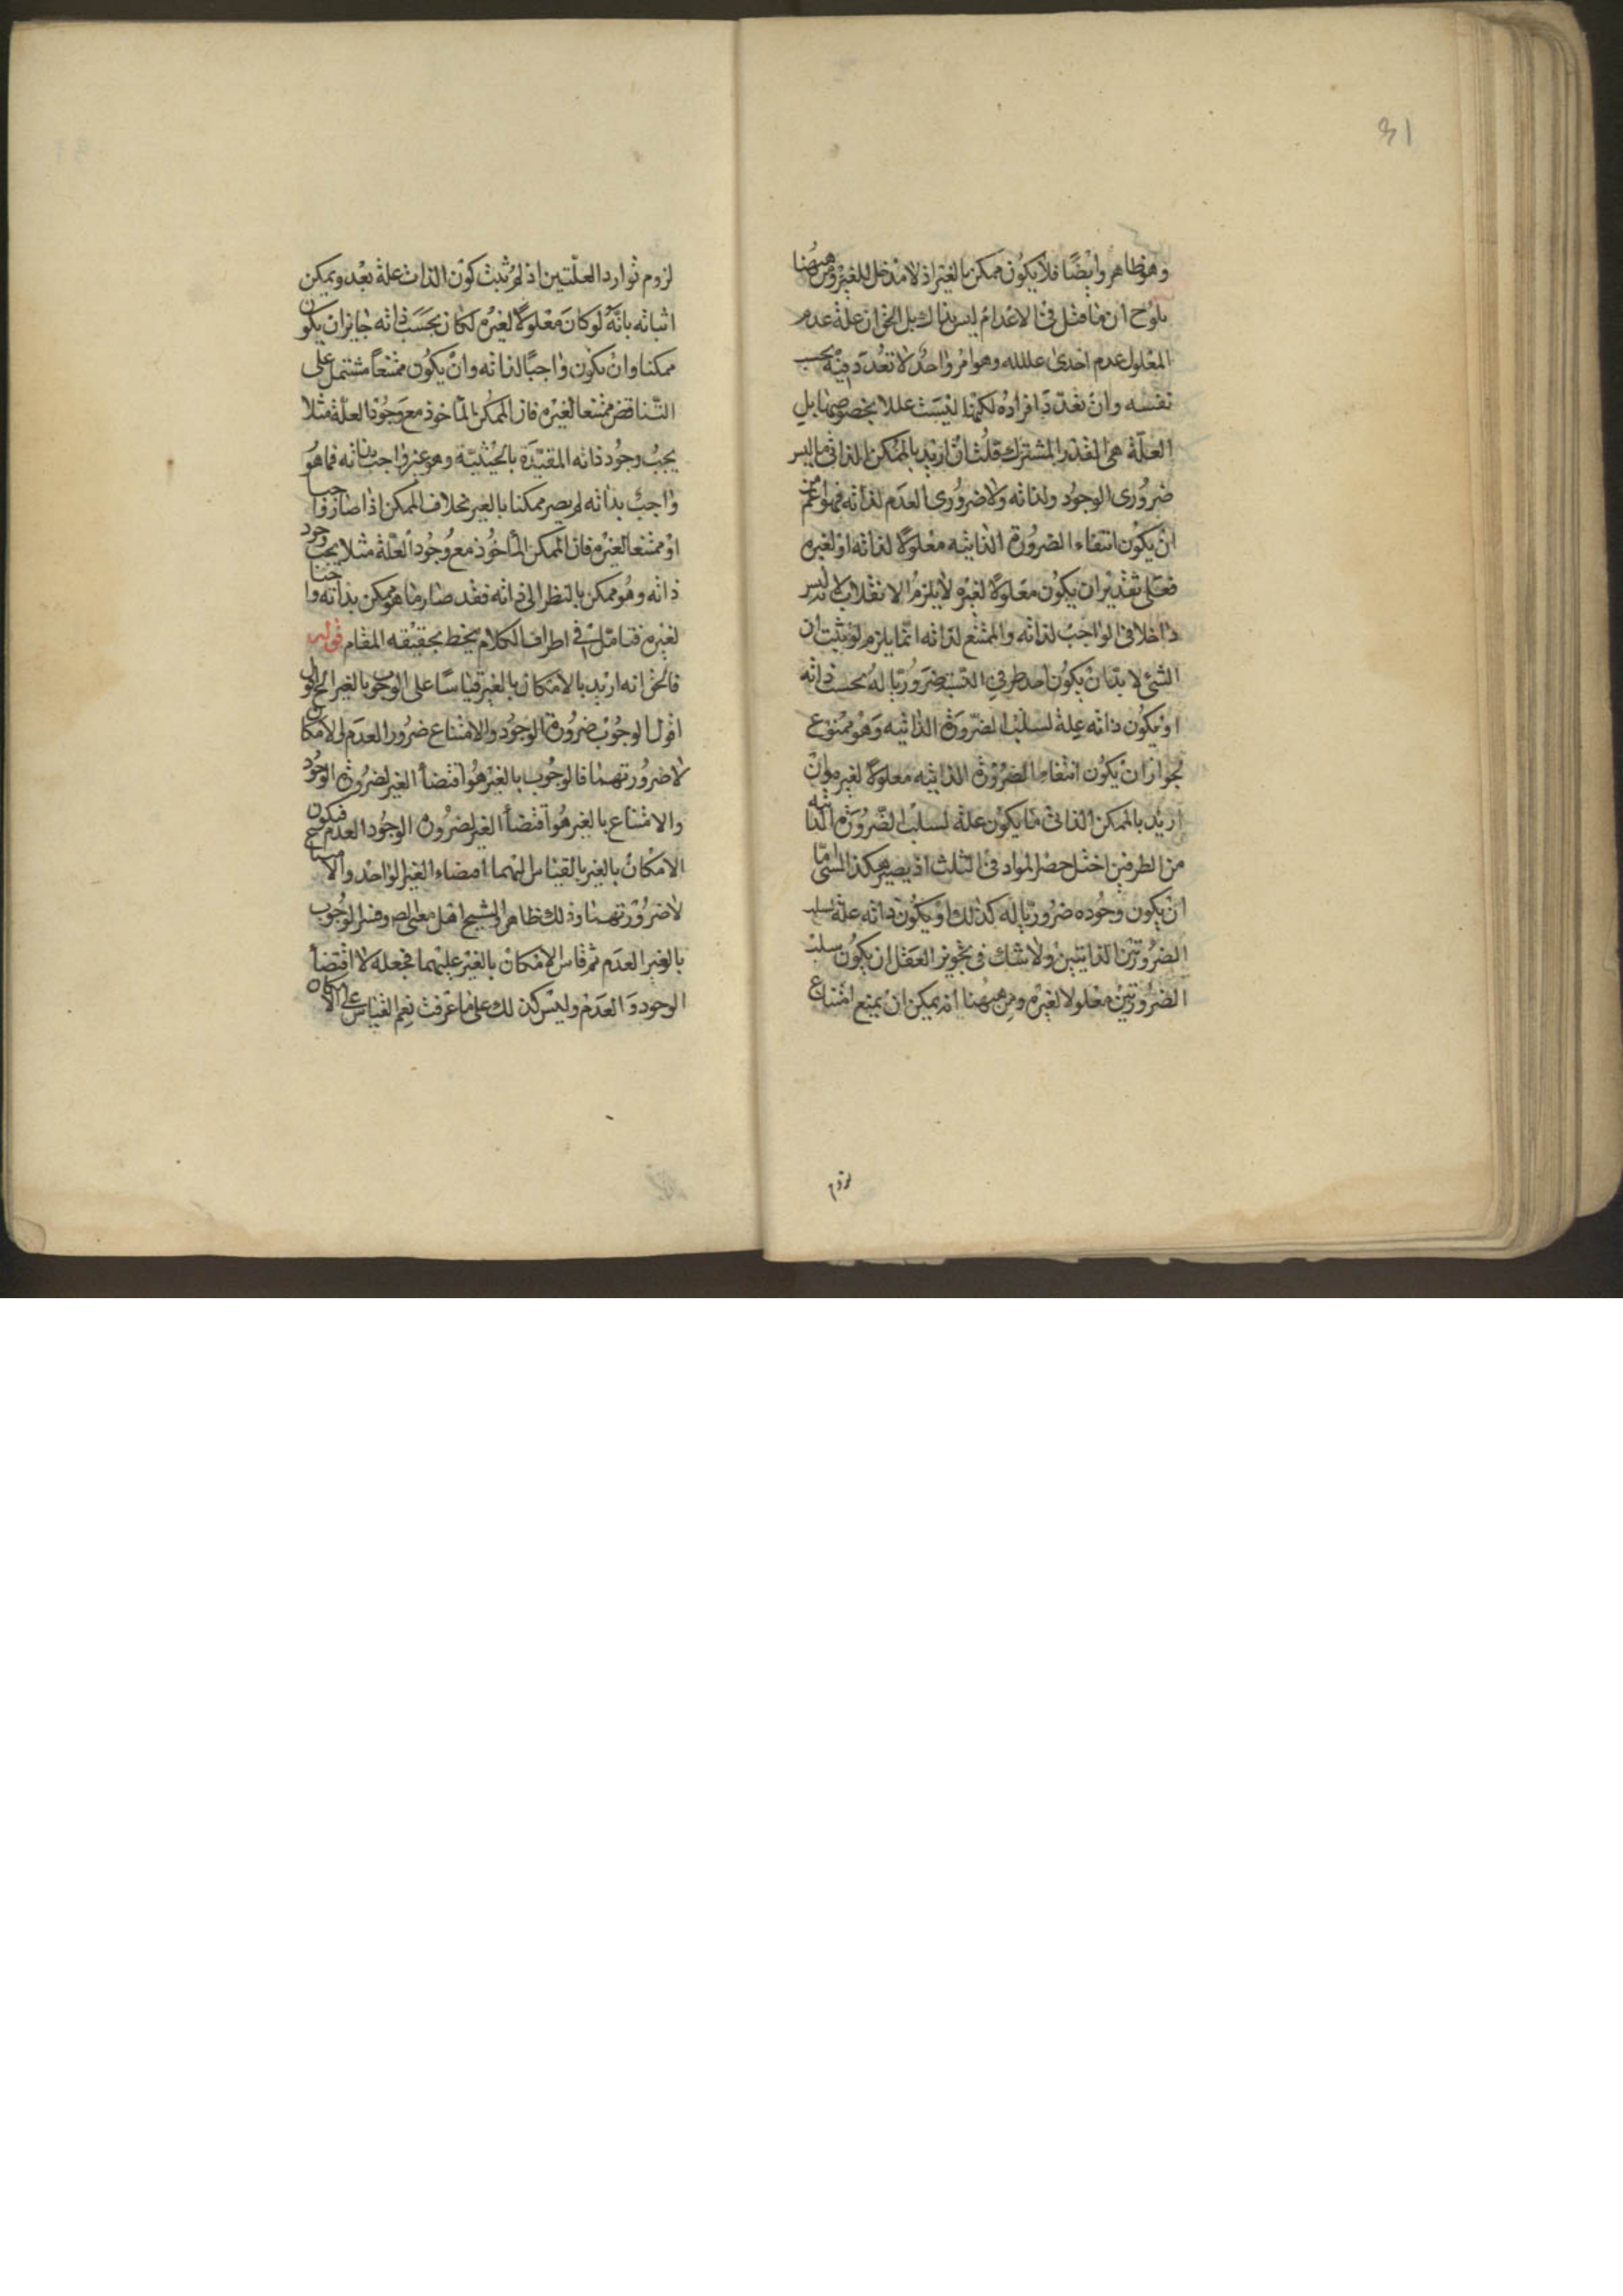 31
وهو ظاهر وايضًا فلا يكون ممكن بالغير اذ لا مدخل للغير ومن ههنا
يلوح ان ما مثل في الاعدام ليس بذاك بل الحق ان علة عدم
المعلول عدم احدى علله وهو امر واحد لا تعدد فيه بحسب
نفسه وان تعدد افراده لكنها ليست عللا بخصوصها بل
العلة هي القدر المشترك قلت ان اريد بالممكن الذاتي ما ليس
ضروري الوجود ولذاته ولا ضروري العدم لذاته فهو اعم من
ان يكون انتفاء الضرورة الذاتيه معلولا لذاته او لغيره
فعلى تقدير ان يكون معلولا لغيره لا يلزم الانقلاب لانه ليس
داخلا في الواجب لذاته والممتنع لذاته انما يلزم لو ثبت ان
الشئ لا بد ان يكون احد طرفي النسبة ضروريا له بحسب ذاته
او يكون ذاته علة لسلب الضرورة الذاتيه وهو ممنوع
لجواز ان يكون انتفاء الضرورة الذاتيه معلولا لغيره وان
اريد بالممكن الذاتي ما يكون علة لسلب الضرورة الذاتيه
من الطرفين اختل حصر المواد في الثلث اذ يصير هكذا الشئ اما
ان يكون وجوده ضروريا له كذلك او يكون ذاته علة لسلب
الضرورتين الذاتيتين ولا شك في تجويز العقل ان يكون سلب
الضرورتين معلولا لغيره ومن ههنا انه يمكن ان يمنع امتناع
لزوم
لزوم توارد العلتين اذ لم يثبت كون الذات علة بعد ويمكن
اثباته بانه لو كان معلولا لغيره لكان بحسب ذاته جايزا ان يكون
ممكنا وان يكون واجبًا لذاته وان يكون ممتنعاً مشتمل على
التناقض ممتنعا لغيره فان الممكن الماخوذ مع وجود العلة مثلا
يجب وجود ذاته المقيدة بالحيثية وهو غير واجب بذاته فما هو
واجب بذاته لم يصر ممكنا بالغير بخلاف الممكن اذا صار واجبا
او ممتنعا لغيره فان الممكن المأخوذ مع وجود العلة مثلا يجب وجود
ذاته وهو ممكن بالنظر الى ذاته فقد صار ما هو ممكن بذاته واجبا
لغيره فتامل في اطراف الكلام يحط بحقيقه المقام قوله
فالحق انه اريد بالامكان بالغير قياسًا على الوجوب بالغير الخ
اقول الوجوب ضرورة الوجود والامتناع ضرور العدم والامكان
لا ضرورتهما فالوجوب بالغير هو اقتضأ الغير لضرورة الوجود
والامتناع بالغير هو اقتضأ الغير لضرورة الوجود العدم فيكون
الامكان بالغير بالقياس اليهما اقتضاء الغير الواحد
لا ضرورتهما وذلك ظاهر والشيخ اهل معنى وفسر الوجوب
بالغير العدم ثم قاس الامكان بالغير عليهما فجعله لا اقتضأ
الوجود و العدم وليس كذلك على ما عرفت نعم القياس على الامكان